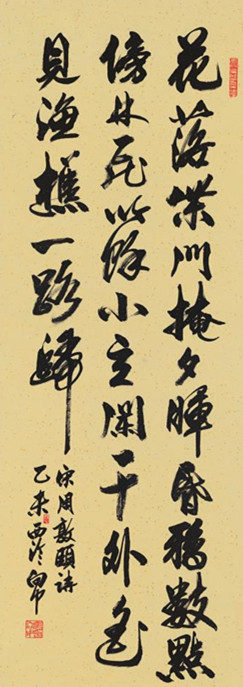 花落柴門掩夕暉昏鴉數點
傍林飛吟餘小立闌干外遙
見漁樵一路歸
宋周敦頤詩
乙未